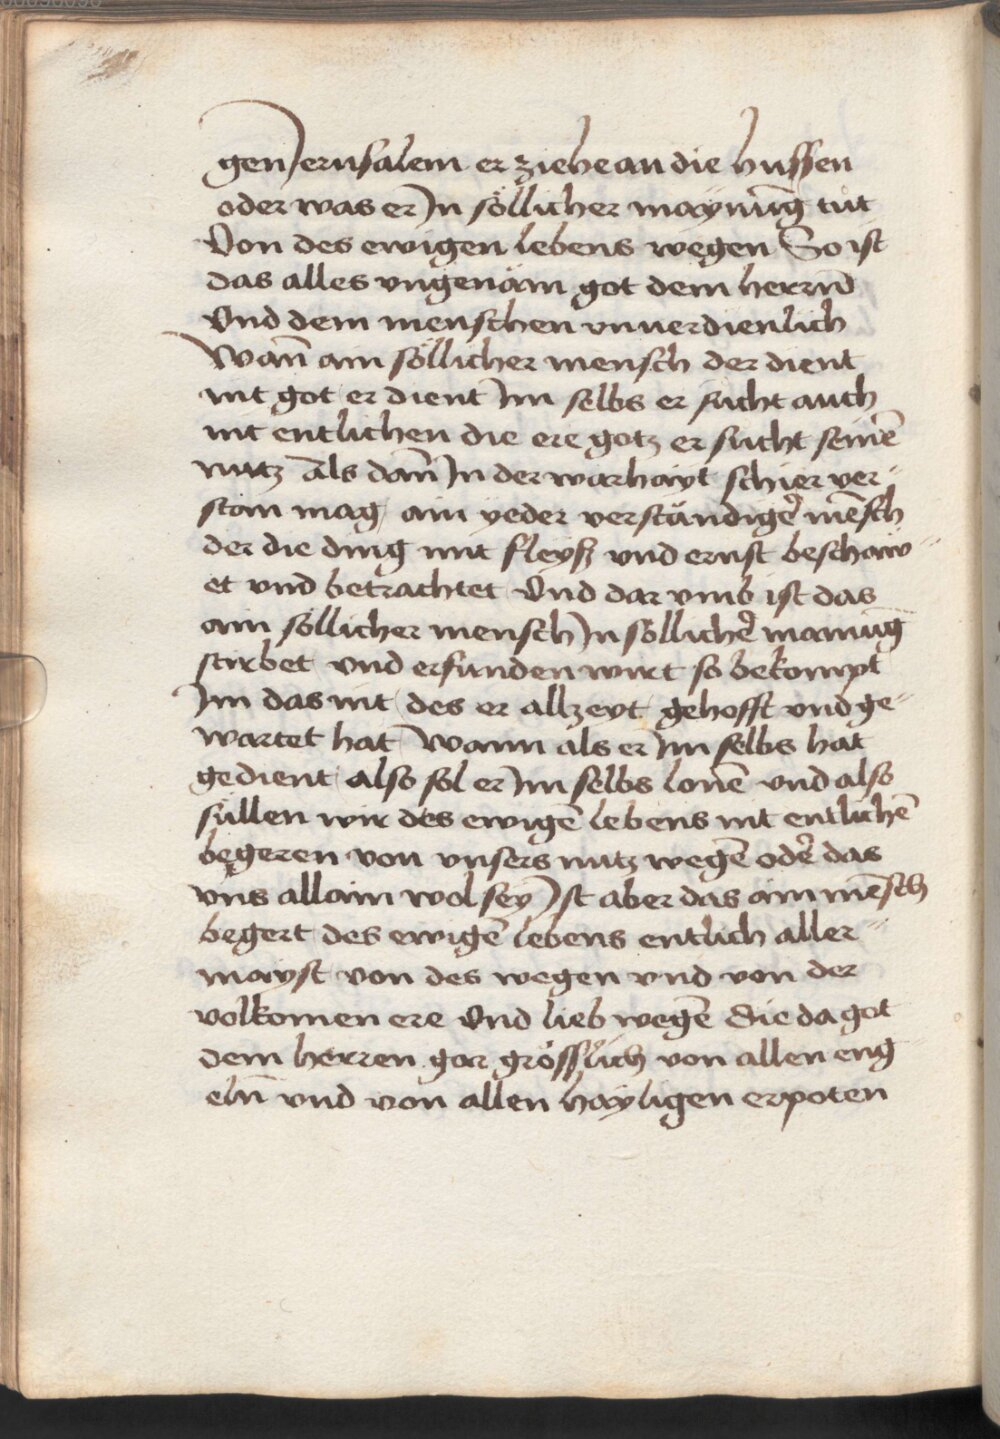 gen Jerusalem er ziehe an die hussen
oder was er Jn söllicher maynūg tůt
Von des ewigen lebens wegen So ist
das alles vngenäm got dem herrn̄
Vnd dem menschen vnuerdienlich
Wan̄ ain söllicher mensch der dient
nit got er dient Jm selbs er sücht auch
nit entlichen die ere gotz er sücht seinē
nutz Als dan̄ Jn der warhayt schier ver⸗
stan mag ain yeder verständigˀ mēsch
der die ding mit fleyß vnd ernst beschaw⸗
et vnd betrachtet Vnd dar vmb ist das
ain söllicher mensch Jn söllichˀ mainūg
stirbet vnd erfunden wirt so bekompt
Jm das nit des er allzeyt gehofft vnd ge⸗
wartet hat Wann als er Jm selbs hat
gedient also sol er Jm selbs lonē vnd also
süllen wir des ewigē lebens nit entlichē
begeren von vnsers nutz wegē odˀ das
vns allain wol sey Jst aber das ain mēsch
begert des ewigē lebens entlich aller⸗
mayst von des wegen vnd von der
volkomen ere Vnd lieb wegē Die da got
dem herren gar grösslich von allen eng
eln̄ vnd von allen hayligen erpoten